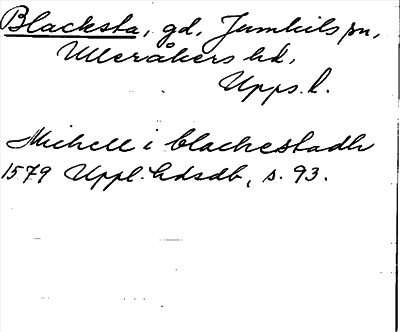 Blacksta, gd, Jumkils sn,
Ulleråkers hd,
Upps. l.
Michell i blackestadh
1579 Uppl. hdsdb, s. 93.